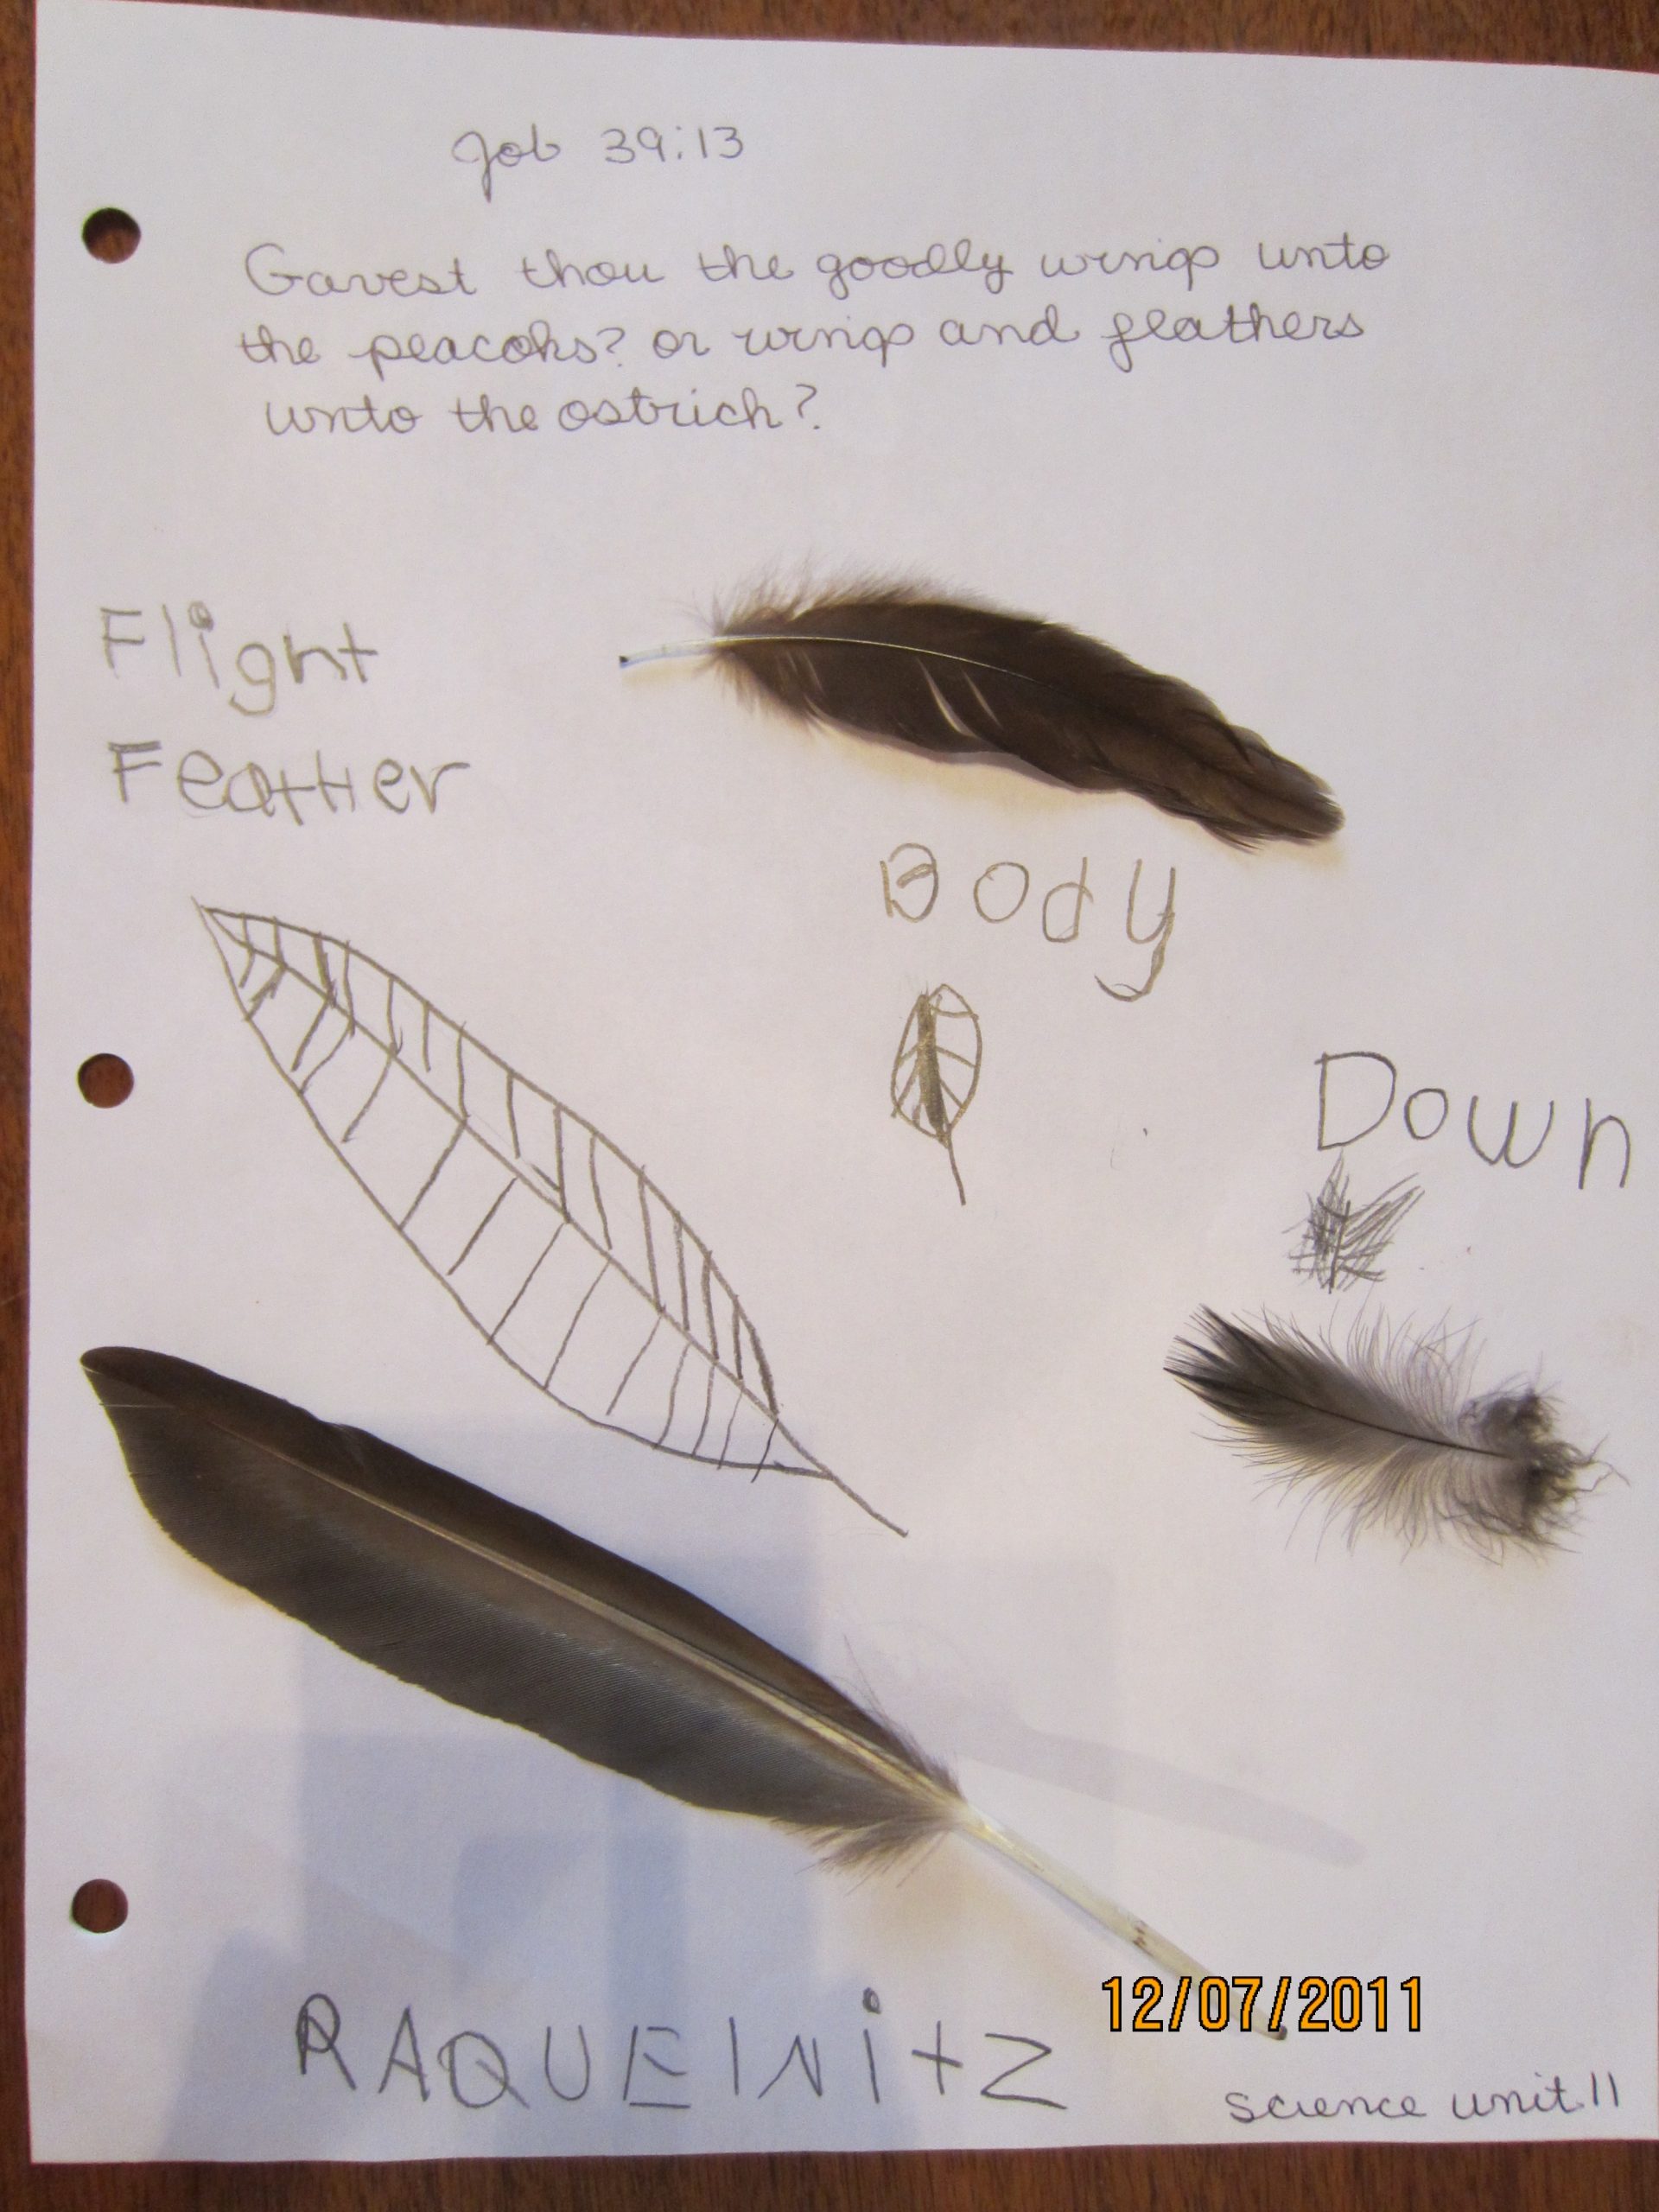 Job 39:13
Gavest thou the goodly wings unto
the peacoks? or wings and feathers
unto the ostrich?
Flight
Feather
Body
Down
RAQUElNitz
12/07/2011
science unit 11